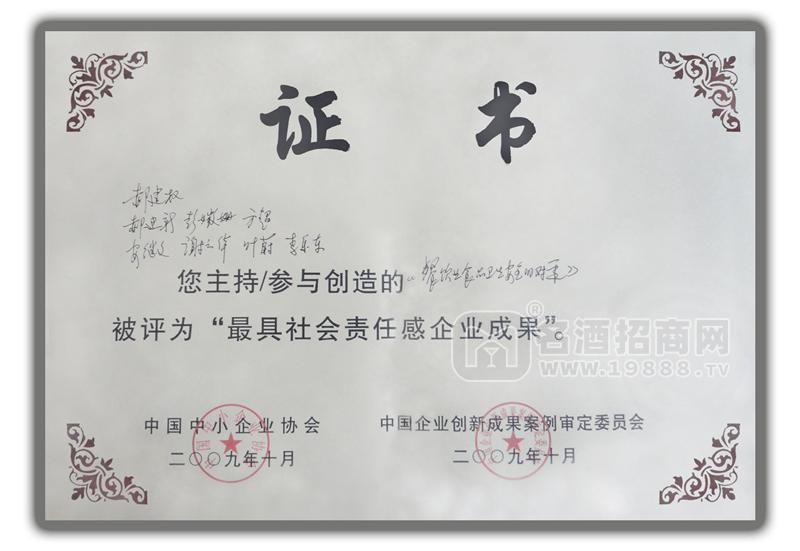 证 书
郝建
郝建新 彭 方
安继文 谢 叶蔚 李乐东
您主持/参与创造的《餐饮业食品卫生安全的对策》
被评为“最具社会责任感企业成果”。
名酒招商网
www.19888.tv
中国中小企业协会
二〇〇九年十月
中国企业创新成果案例审定委员会
二〇〇九年十月